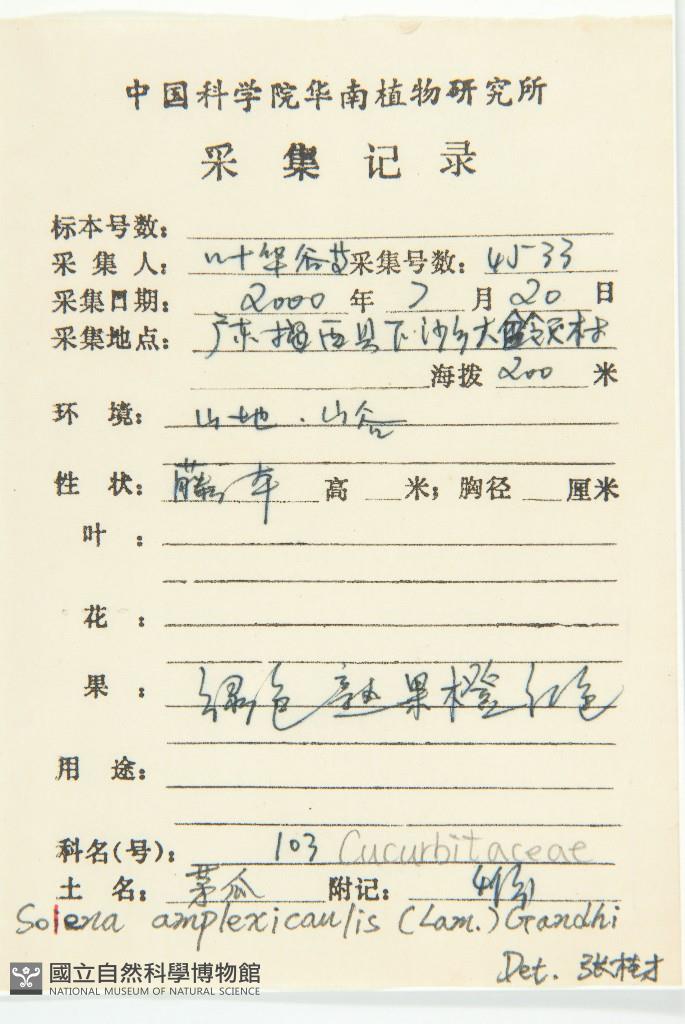 中国科学院华南植物研究所
采集记录
标本号数：
采集人：叶华谷等 采集号数：4533
采集日期：2000年7月20日
采集地点：广东揭西县下沙乡大岭村
海拨 200 米
环境：山地．山谷
性状：藤本 高 米；胸径 厘米
叶：
花：
果：绿色 熟果橙红色
用途：
科名(号)：103 Cucurbitaceae
土名：茅瓜 附记：4份
Solena amplexicaulis (Lam.) Gandhi
Det. 张桂才
國立自然科學博物館
NATIONAL MUSEUM OF NATURAL SCIENCE